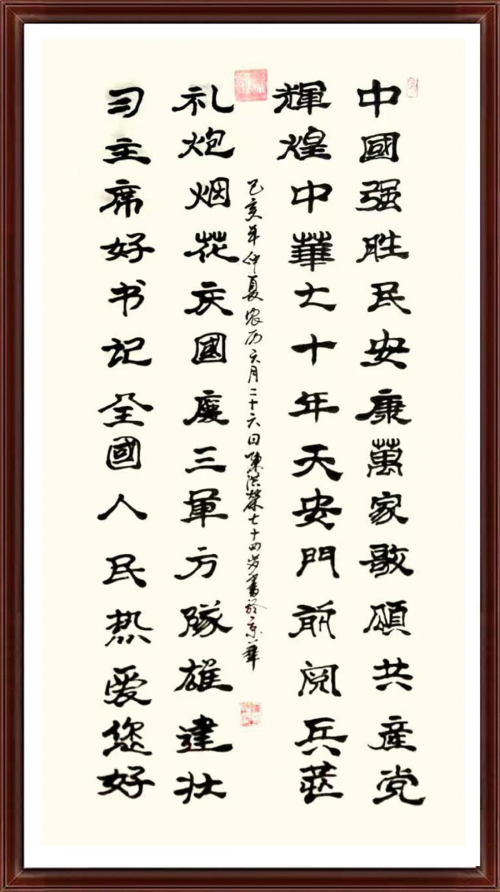 中國强胜民安康萬家歌頌共産党
輝煌中華七十年天安門前阅兵莊
己亥年仲夏农历六月二十六日陳洪榮七十四岁書於京華
礼炮烟花庆國慶三軍方隊雄建壮
习主席好书记全國人民热爱您好